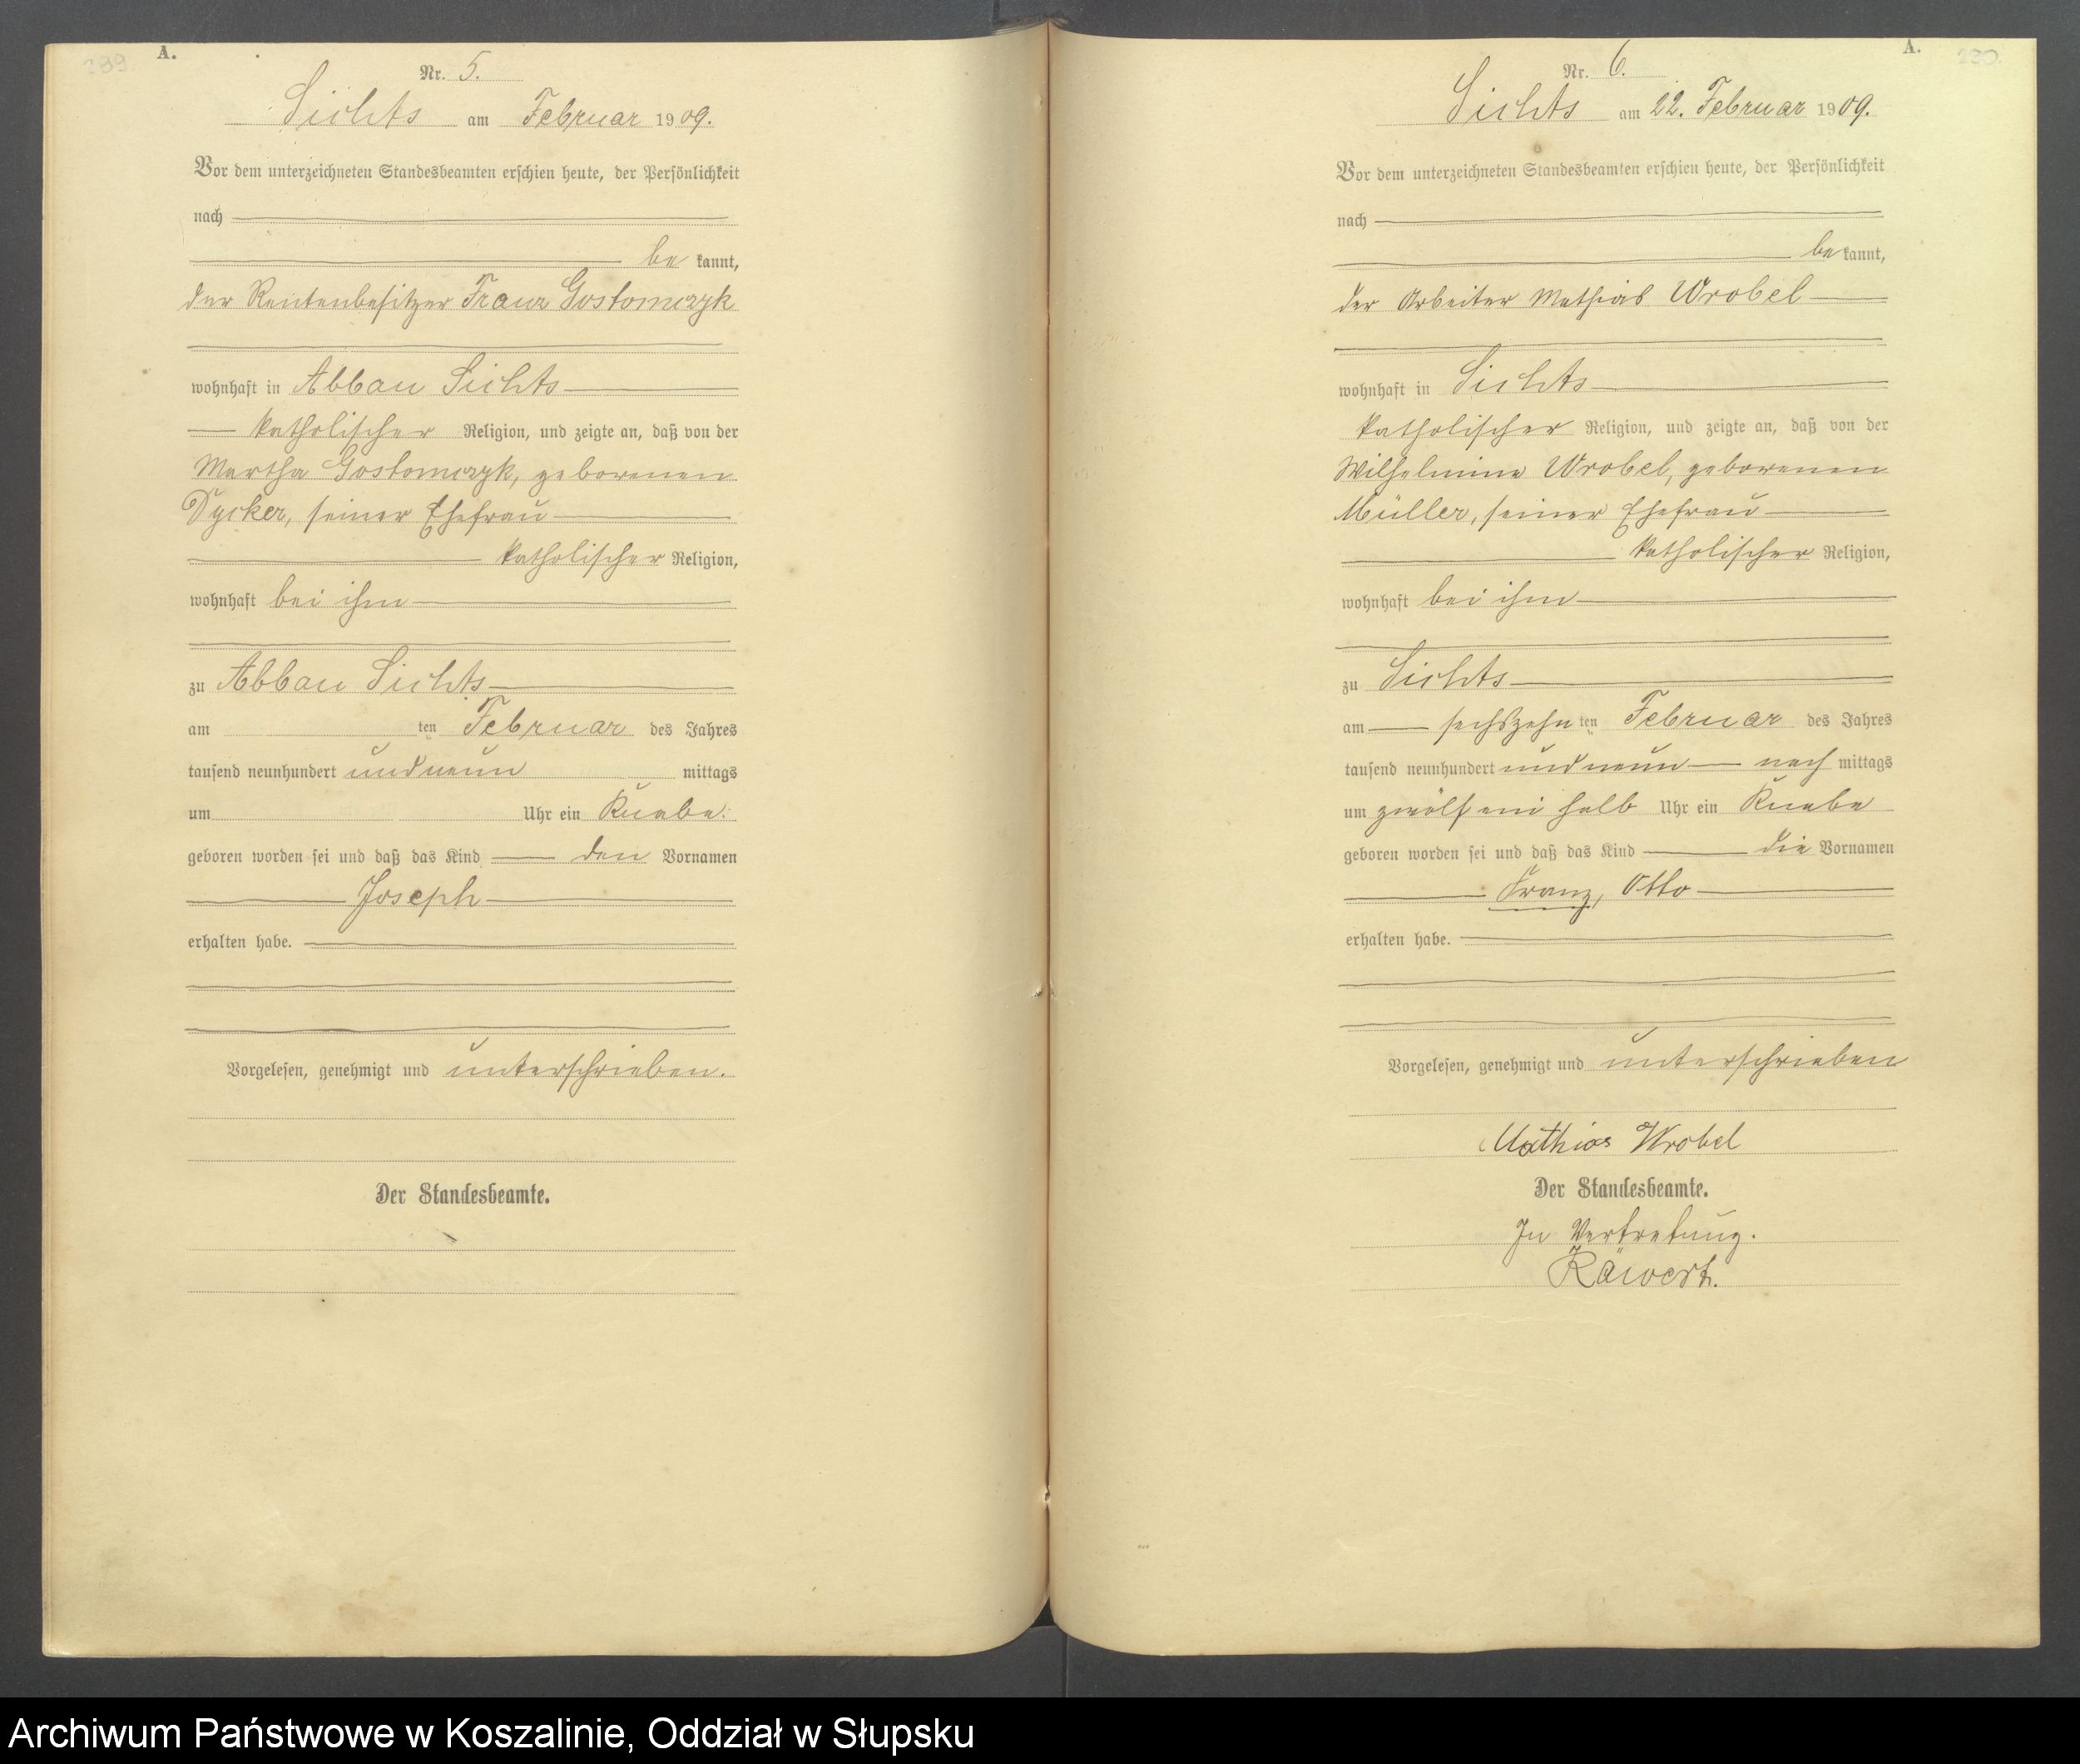 A.
Nr. 5.
Sichts am Februar 1909.
Vor dem unterzeichneten Standesbeamten erschien heute, der Persönlichkeit
nach
be kannt,
der Rentenbesitzer Franz Gostomczyk
wohnhaft in Abbau Sichts
katholischer Religion, und zeigte an, daß von der
Martha Gostomczyk, geborenen
Dycker, seiner Ehefrau
katholischer Religion,
wohnhaft bei ihm
zu Abbau Sichts
am ten Februar des Jahres
tausend neunhundert und neun mittags
um Uhr ein Knabe
geboren worden sei und daß das Kind den Vornamen
Joseph
erhalten habe.
Vorgelesen, genehmigt und unterschrieben.
Der Standesbeamte.
A. 230
Nr. 6.
Sichts am 22. Februar 1909.
Vor dem unterzeichneten Standesbeamten erschien heute, der Persönlichkeit
nach
be kannt,
der Arbeiter Mathias Wrobel
wohnhaft in Sichts
katholischer Religion, und zeigte an, daß von der
Wilhelmine Wrobel, geborenen
Müller, seiner Ehefrau
katholischer Religion,
wohnhaft bei ihm
zu Sichts
am sechszehn ten Februar des Jahres
tausend neunhundert und neun nach mittags
um zwölf ein halb Uhr ein Knabe
geboren worden sei und daß das Kind die Vornamen
Franz, Otto
erhalten habe.
Vorgelesen, genehmigt und unterschrieben
Mathias Wrobel
Der Standesbeamte.
In Vertretung.
Räwert.
Archiwum Państwowe w Koszalinie, Oddział w Słupsku